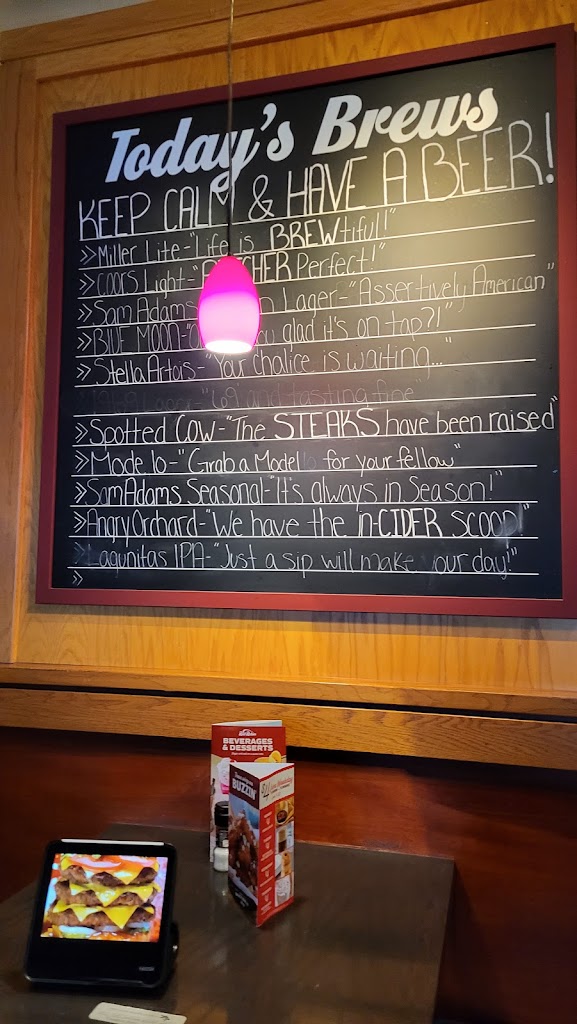 Today's Brews
KEEP CALM & HAVE A BEER!
» Miller Lite - "Life is BREWtiful!"
» COORS Light - "PITCHER Perfect!"
» Sam Adams Lager - "Assertively American"
» BLUE MOON - you glad it's on tap?!"
» Stella Artois - "Your chalice is waiting..."
1969 Lager - "69 and tasting fine
» Spotted Cow - "The STEAKS have been raised"
» Modelo - "Grab a Modello for your fellow"
» Sam Adams Seasonal - "It's always in Season!"
» Angry Orchard - "We have the in-CIDER scoop!"
» Lagunitas IPA - "Just a sip will make your day!"
»
BEVERAGES
& DESSERTS
BUZZIN'